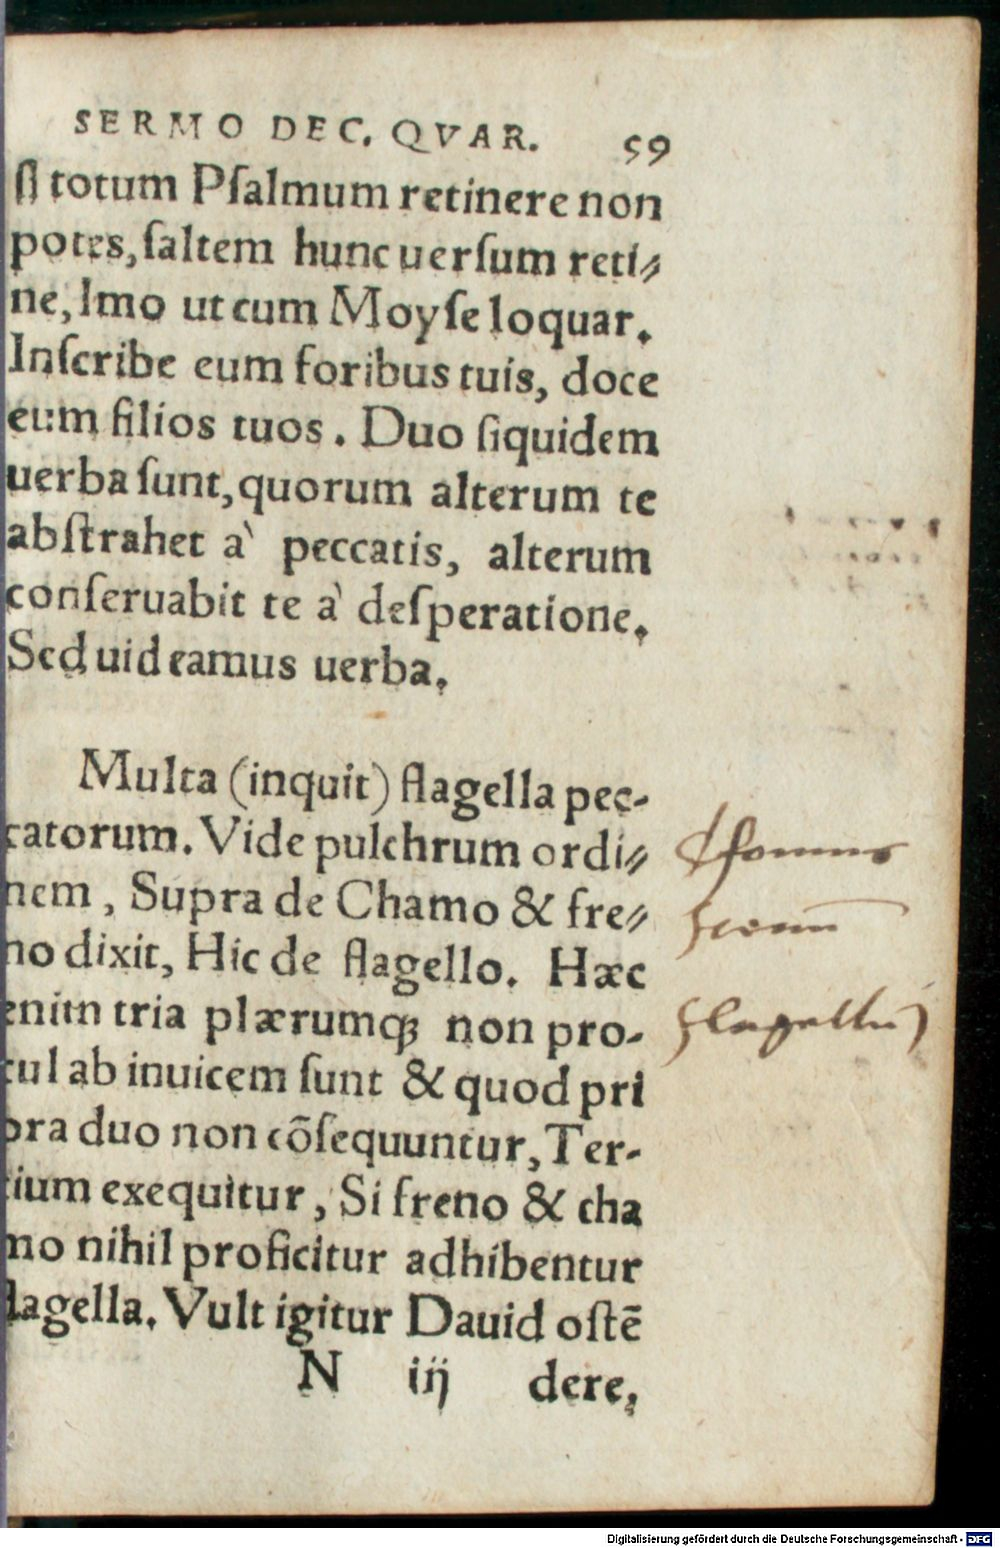 SERMO DEC. QVAR. 59
ſi totum Pſalmum retinere non
potes, ſaltem hunc uerſum reti⸗
ne, Imo ut cum Moyſe loquar.
Inſcribe eum foribus tuis, doce
eum filios tuos. Duo ſiquidem
uerba ſunt, quorum alterum te
abſtrahet à peccatis, alterum
conſeruabit te à deſperatione.
Sed uideamus uerba.
Multa (inquit) flagella pec-
catorum. Vide pulchrum ordi⸗
nem, Supra de Chamo & fre⸗
no dixit, Hic de flagello. Hæc
enim tria plærumq; non pro-
cul ab inuicem ſunt & quod pri
ora duo non cõſequuntur, Ter-
tium exequitur, Si freno & cha
mo nihil proficitur adhibentur
flagella. Vult igitur Dauid oſtẽ
N iij dere,
Chamus
frenũ
flagellũ
Digitalisierung gefördert durch die Deutsche Forschungsgemeinschaft - DFG